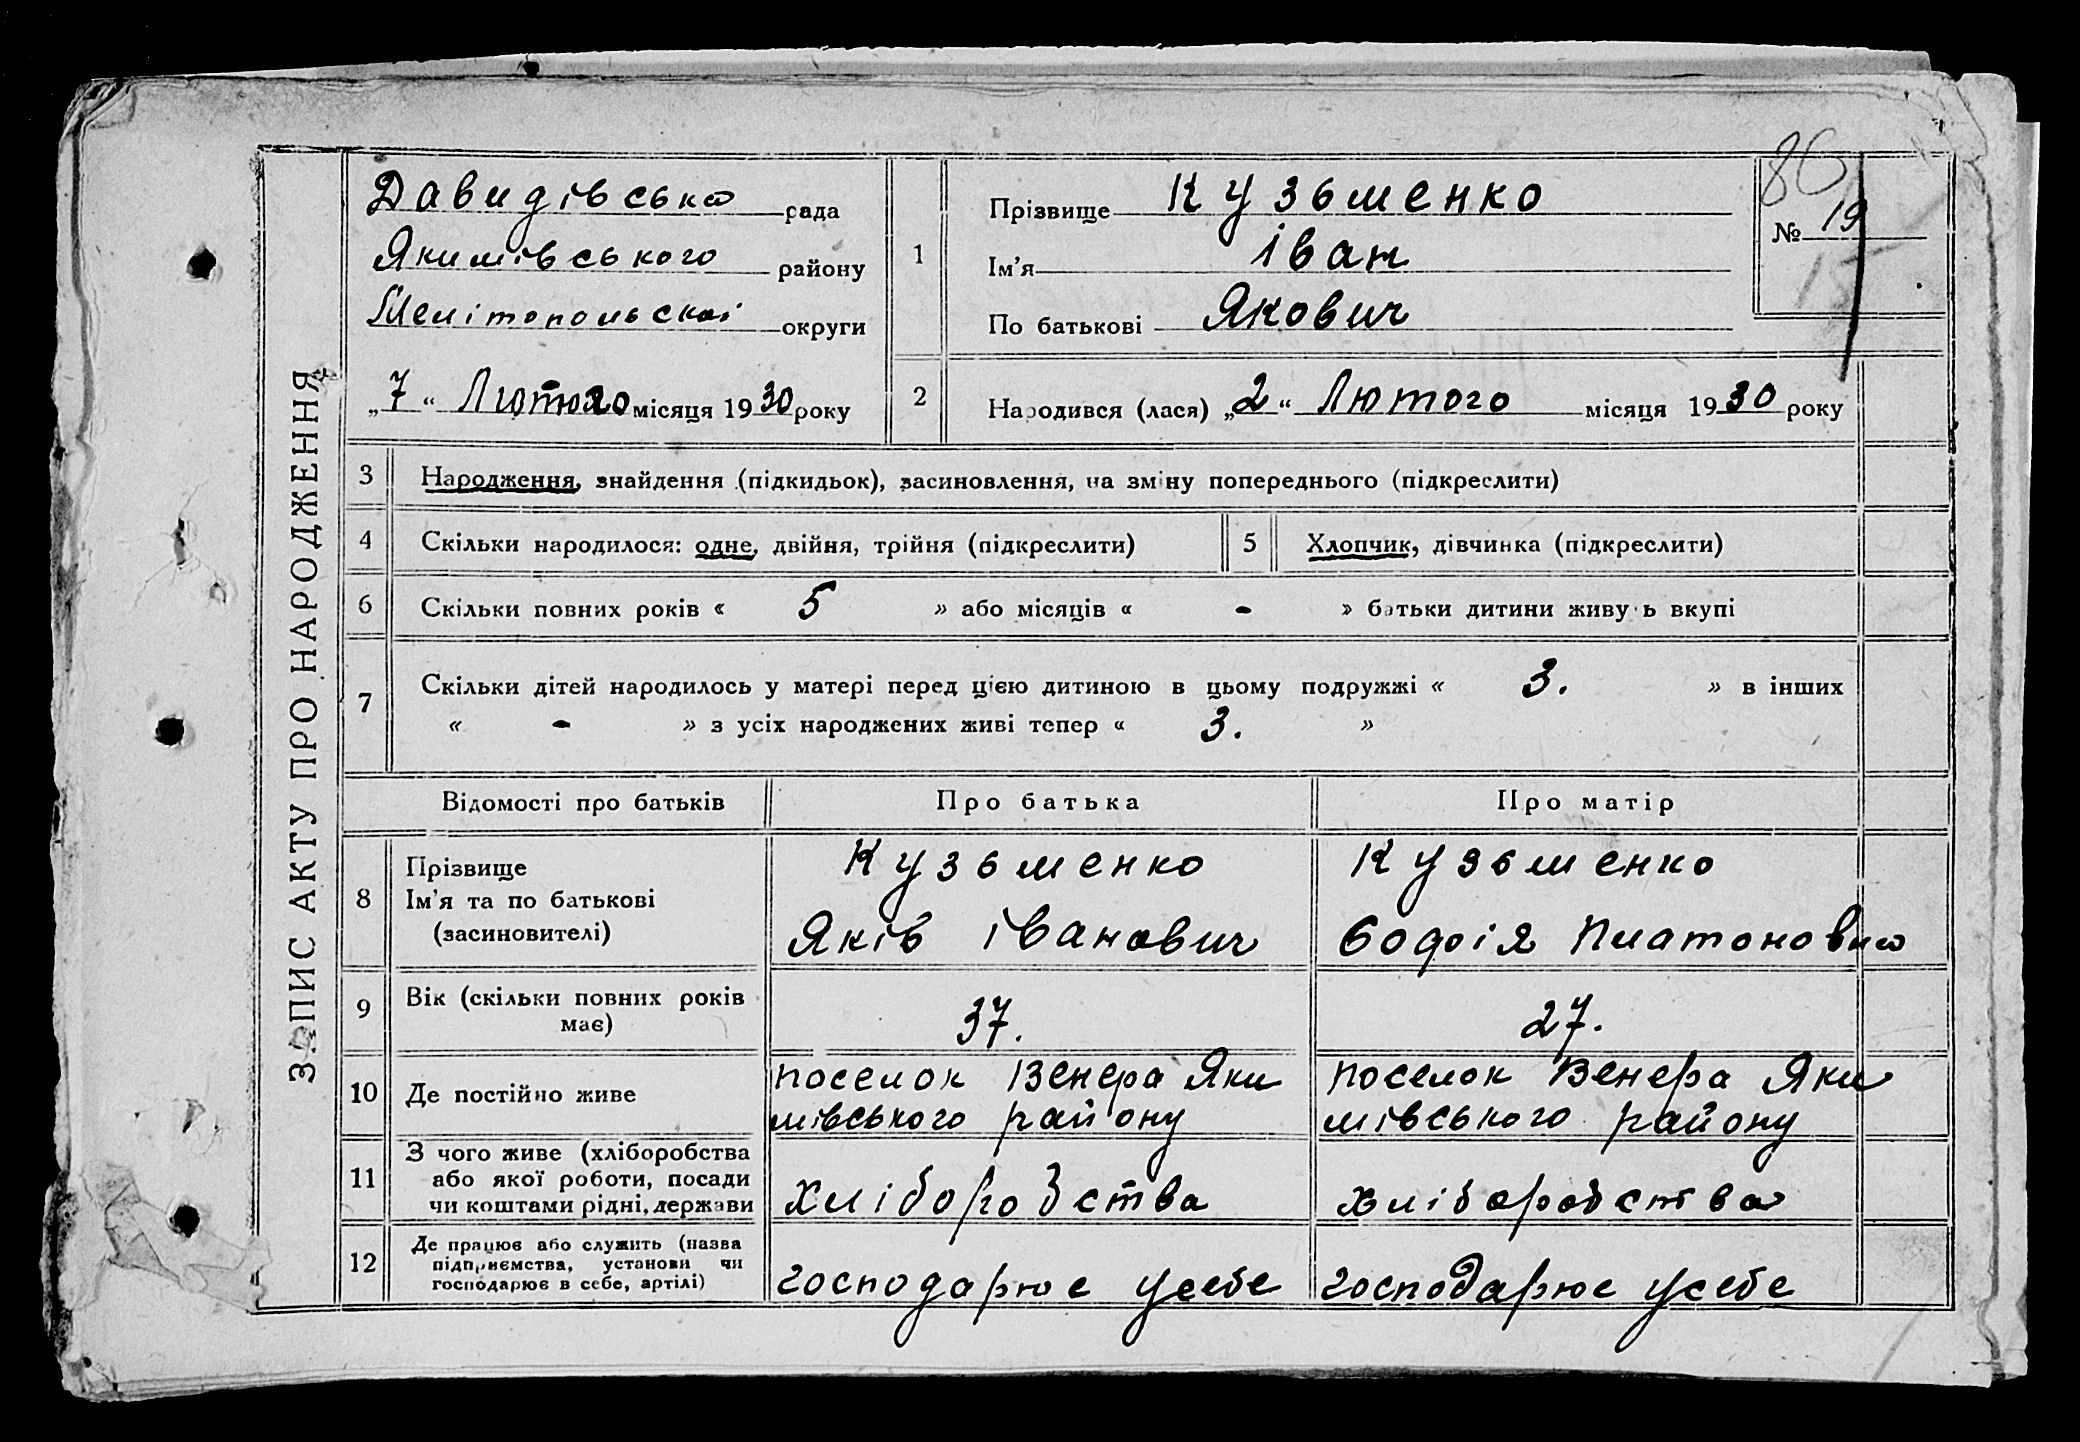 ЗАПИС АКТУ ПРО НАРОДЖЕННЯ
Давидівська рада
Якимівського району
Мелітопольскої округи
„7“ Лютого місяця 1930 року
1
Прізвище Кузьменко
Ім'я Іван
По батькові Якович
86
№ 19
15
2 Народився (лася) „2“ Лютого місяця 1930 року
3 Народження, знайдення (підкидьок), засиновлення, на зміну попереднього (підкреслити)
4 Скільки народилося: одне, двійня, трійня (підкреслити)
5 Хлопчик, дівчинка (підкреслити)
6 Скільки повних років « 5 » або місяців « - » батьки дитини живуть вкупі
7 Скільки дітей народилось у матері перед цією дитиною в цьому подружжі « 3. » в інших
« - » з усіх народжених живі тепер « 3. »
Відомості про батьків Про батька Про матір
8 Прізвище
Ім'я та по батькові
(засиновителі)
Кузьменко
Яків Іванович
Кузьменко
Софія Платоновна
9 Вік (скільки повних років
має)
37.
27.
10 Де постійно живе
поселок Венера Яки
мівського району
поселок Венера Яки
мівського району
11 З чого живе (хліборобства
або якої роботи, посади
чи коштами рідні, держави
хліборобства
хліборобства
12 Де працює або служить (назва
підприємства, установи чи
господарює в себе, артілі)
господарює усебе
господарює усебе